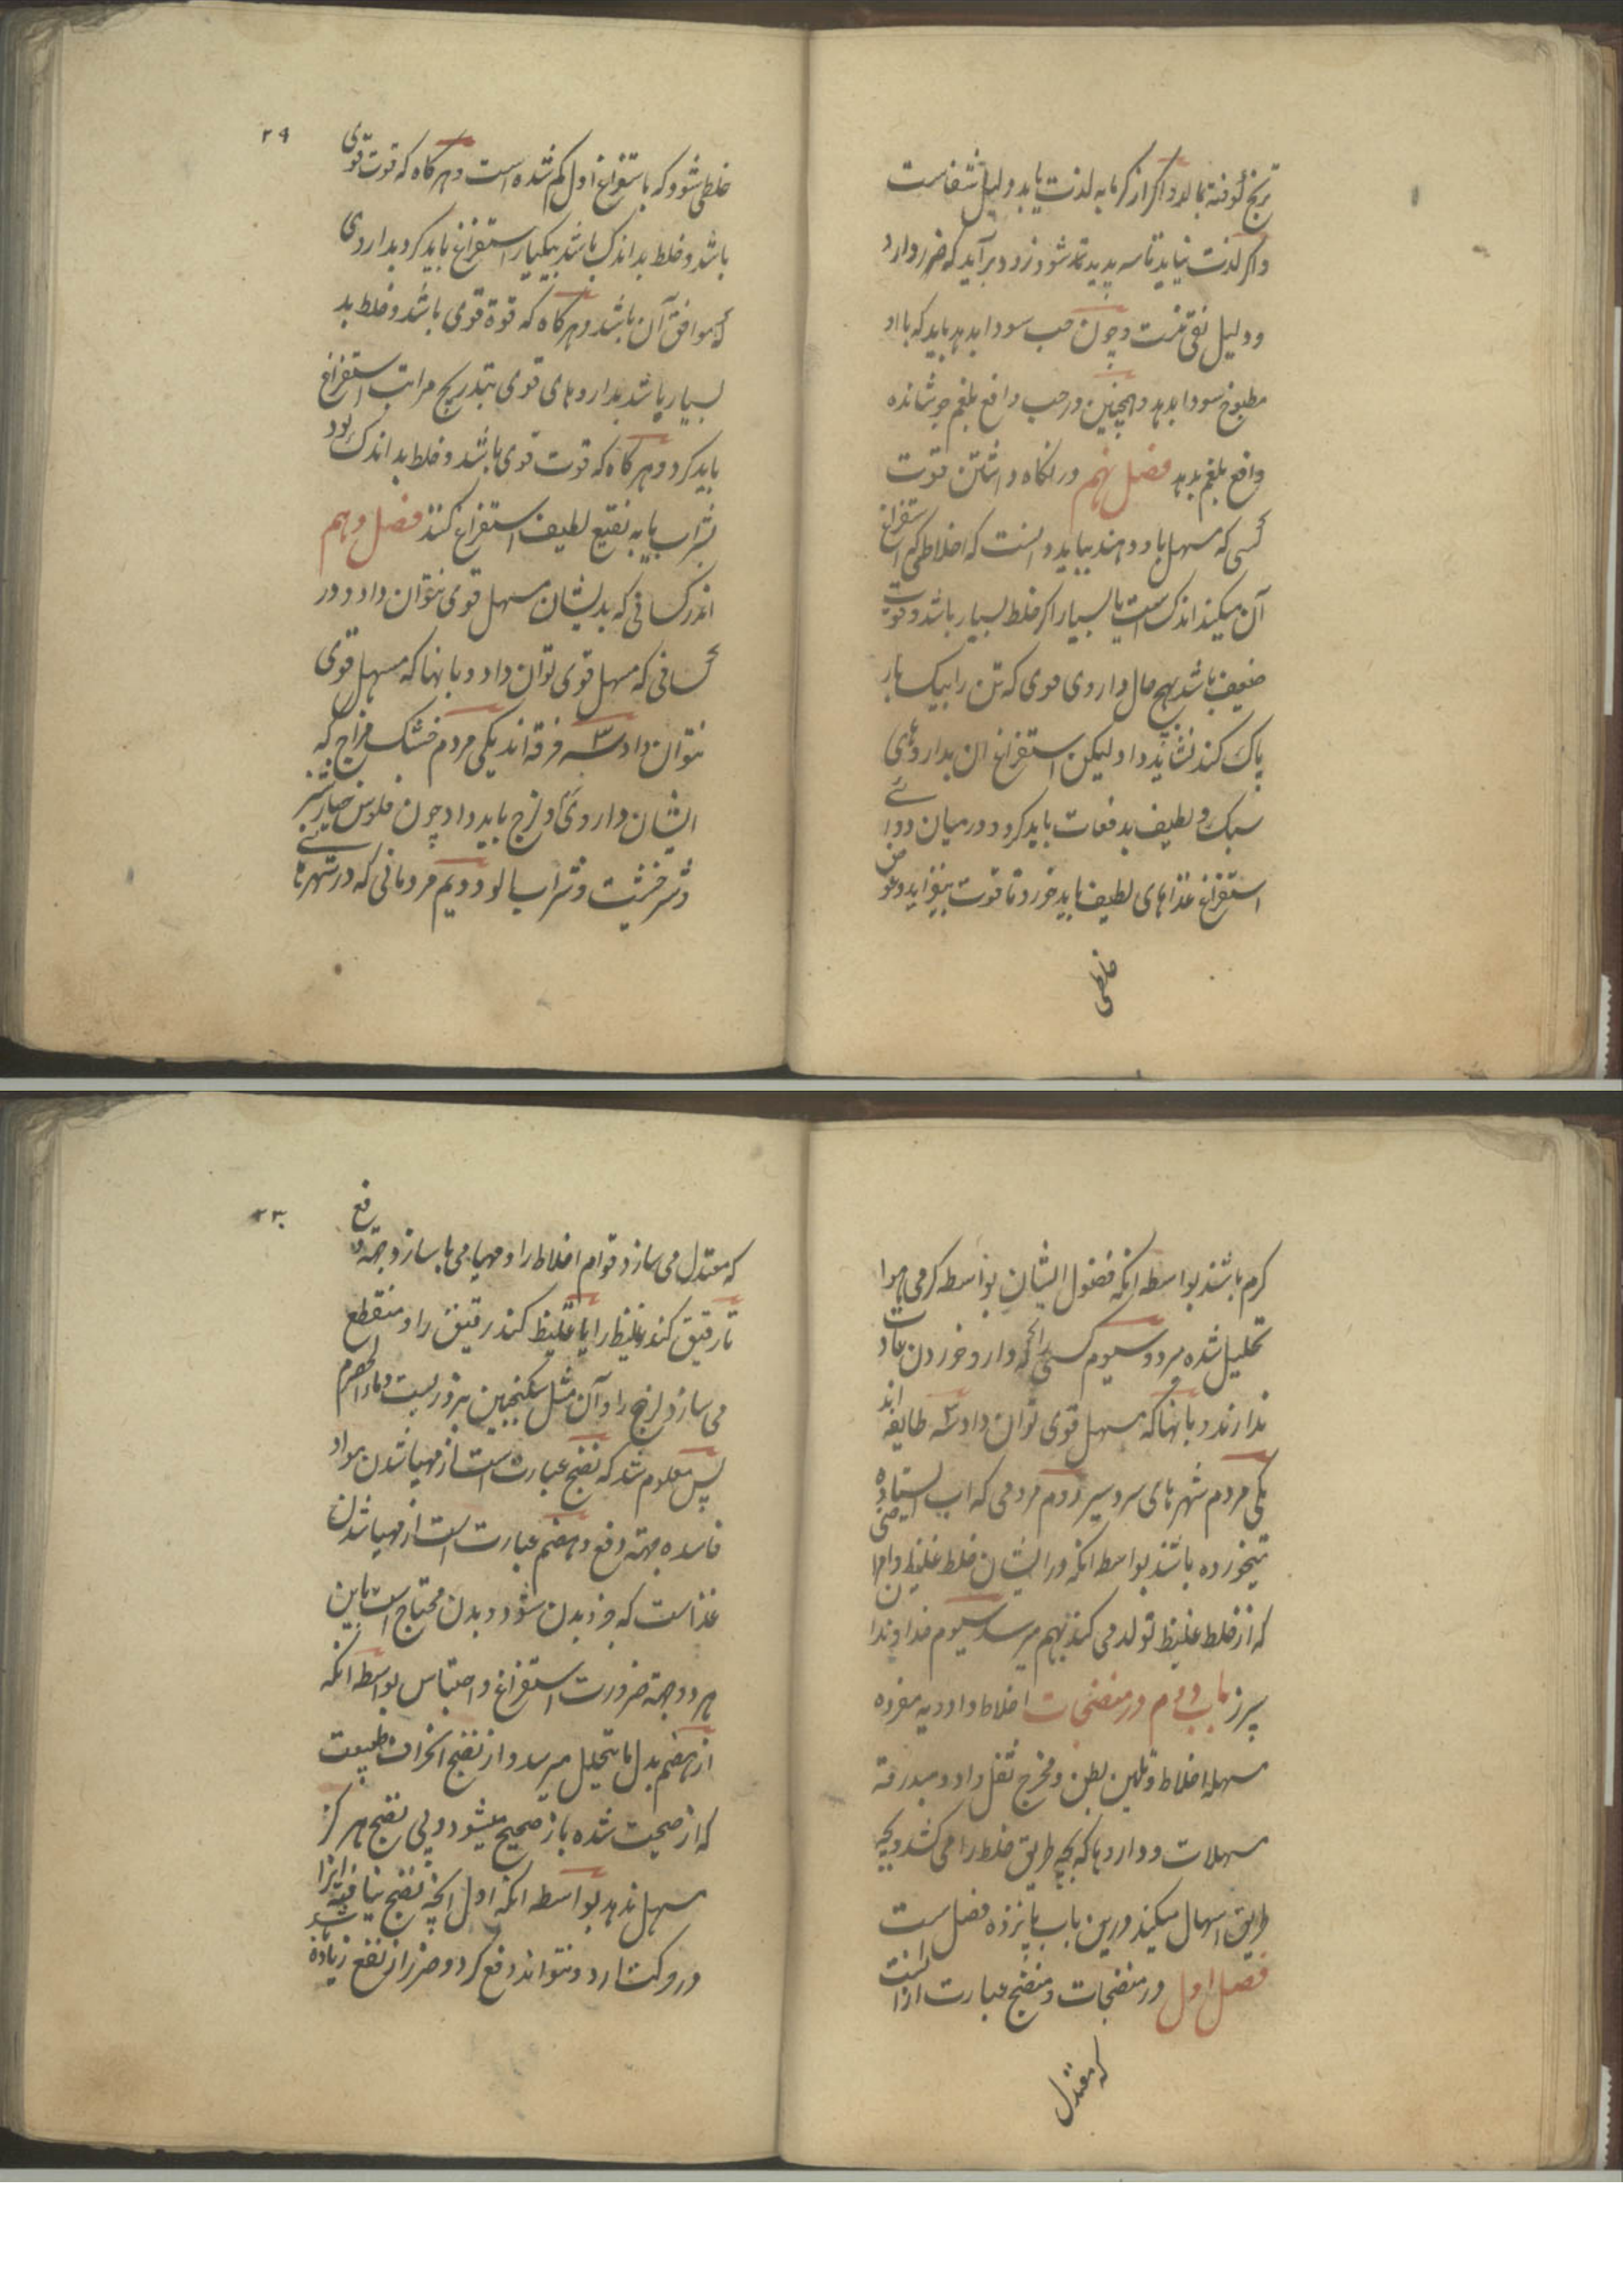 ترنج کوفته بمالد و اکر از کرمابه لذت یابد دلیل شفاست
و اکر لذت نیابد تاسه پدید شود زود برآید که ضرر دارد
و دلیل نقی نیست و چون حب سودا بدهد باید که با او
مطبوخ سودا بدهد و همچنین در حب دافع بلغم جوشانده
دافع بلغم بدهد فصل نهم در نکاه داشتن قوت
کسی که مسهل باو دهند بباید دانست که اخلاطی که استفراغ
آن میکنند اندک است یا بسیار اکر خلط بسیار باشد و قوت
ضعیف باشد بهیچ حال داروی قوی که تن را بیک بار
پاک کند نشاید داد و لیکن استفراغ ان بداروهای
سبک و لطیف بدفعات باید کرد و در میان دوائی
استفراغ غذاهای لطیف باید خورد تا قوت بیفزاید و عوض
خلطی
۲۹
خلطی شود که باستفراغ اول کم شده است و هرکاه که قوت قوی
باشد و خلط بد اندک باشد بیکبار استفراغ باید کرد بداروی
که موافق آن باشد و هرکاه که قوة قوی باشد و خلط بد
بسیار باشد بداروهای قوی بتدریج مراتب استفراغ
باید کرد و هرکاه که قوت قوی باشد و خلط بد اندک بود
بشراب یا به نقیع لطیف استفراغ کنند فصل دهم
اندر کسانی که بدیشان مسهل قوی نتوان داد و در
کسانی که مسهل قوی توان داد و بانها که مسهل قوی
نتوان داد سه فرقه اند یکی مردم خشک مزاج که
ایشان داروی لزج باید داد چون فلوس خیارشنبر
و شیرخشت و شراب الو دویم مردمانی که در شهرهای
کرم باشند بواسطه انکه فضول ایشان بواسطه کرمی هوا
تحلیل شده میرود سیوم کسی را که دارو خوردن عادت
ندارند و بانها که مسهل قوی توان داد سه طایفه اند
یکی مردم شهرهای سردسیر دوم مردمی که اب ایستاده
میخورده باشند بواسطه انکه در ایشان خلط غلیظ و امراضی
که از خلط غلیظ تولد می کند بهم میرسد سیوم خداوندان
سپرز باب دویم در منضجات اخلاط و ادویه مفرده
مسهله اخلاط و تلیین بطن و مخرج ثفل و ادو مبدرقه
مسهلات و داروها که بچه طریق خلط را می کشد و بچه
طریق اسهال میکند و درین باب پانزده فصل است
فصل اول در منضجات و منضج عبارت از انست
که معتدل
۳۰
که معتدل می سازد قوام اخلاط را و مهیا می سازد جهة دفع
تا رقیق کند غلیظ را یا غلیظ کند رقیق را و منقطع
می سازد لزج را و آن مثل سکنجبین بزوریست و ماء الحصرم
پس معلوم شد که نضج عبارة است از مهیا شدن مواد
فاسده بجهته دفع و هضم عبارت است از مهیا شدن
غذاست که جزء بدن شود و بدن محتاج است باین
هر دو بجهة ضرورت استفراغ و احتباس بواسطه انکه
از هضم بدل ما یتحلل میرسد و از نضج انحراف طبیعت
که از صحت شده باز صحیح میشود و بی نضج هرکز
مسهل ندهد بواسطه انکه اول انچه نضج نیافته انرا
در حرکت ارد و نتواند دفع کرد و ضرر از نفع زیاده باشد